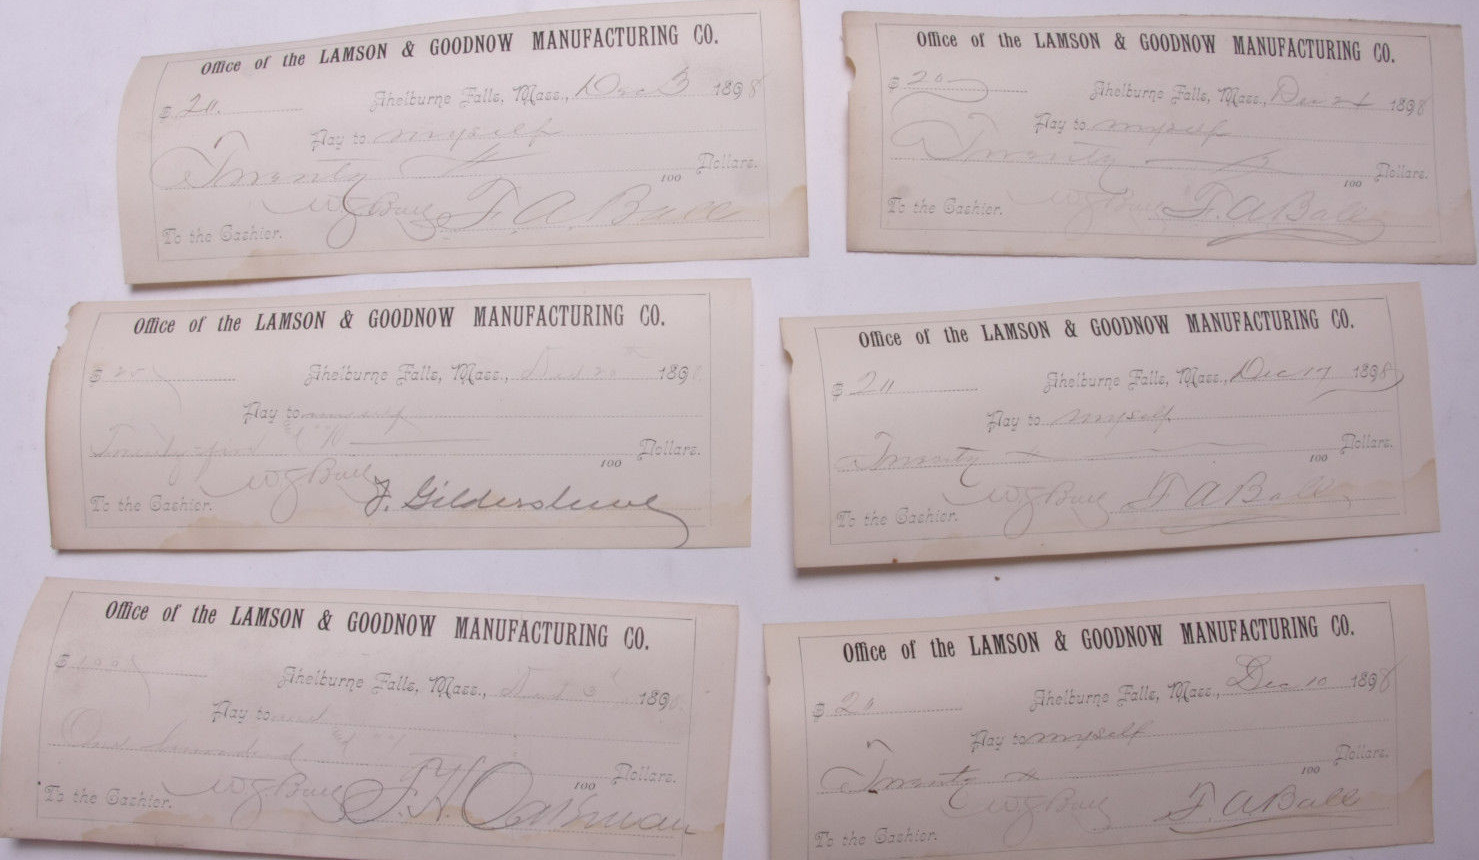 Office of the LAMSON & GOODNOW MANUFACTURING CO.
$ 20. Shelburne Falls, Mass., Dec 3 1898
Pay to myself
Twenty 100 Dollars.
W G Ball F. A. Ball
To the Cashier.
Office of the LAMSON & GOODNOW MANUFACTURING CO.
$ 20 Shelburne Falls, Mass., Dec 24 1898
Pay to myself
Twenty 100 Dollars.
W G Ball F. A Ball
To the Cashier.
Office of the LAMSON & GOODNOW MANUFACTURING CO.
$ 25 Shelburne Falls, Mass., 189
Pay to
Twenty five 100 Dollars.
W G Ball
To the Cashier. F. Gildersleeve
Office of the LAMSON & GOODNOW MANUFACTURING CO.
$ 20 Shelburne Falls, Mass., Dec 17 1898
Pay to myself
Twenty 100 Dollars.
W G Ball F A Ball
To the Cashier.
Office of the LAMSON & GOODNOW MANUFACTURING CO.
$ 100 Shelburne Falls, Mass., 189
Pay to
One hundred 100 Dollars.
W G Ball F. H. Oakman
To the Cashier.
Office of the LAMSON & GOODNOW MANUFACTURING CO.
$ 20 Shelburne Falls, Mass., Dec 10 1898
Pay to myself
Twenty 100 Dollars.
W G Ball F. A Ball
To the Cashier.